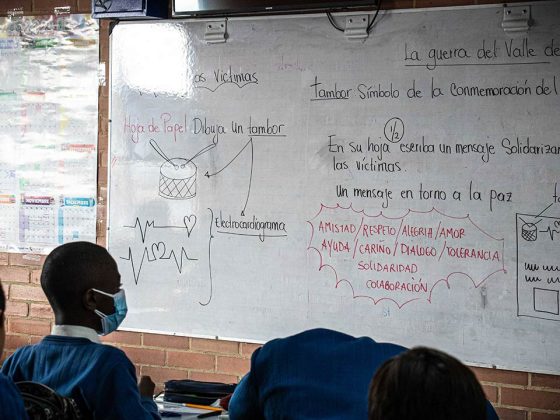 os Víctimas
Hoja de Papel Dibuja un tambor
Electrocardiograma
La guerra del Valle de
tambor Símbolo de la conmemoración del
En su hoja 1/2 escriba un mensaje Solidarizan
las víctimas.
Un mensaje en torno a la paz
AMISTAD/RESPETO/ALEGRIA/AMOR
AYUDA/CARIÑO/DIALOGO/TOLERANCIA
SOLIDARIDAD
COLABORACIÓN
NOVIEMBRE
DICIEMBRE